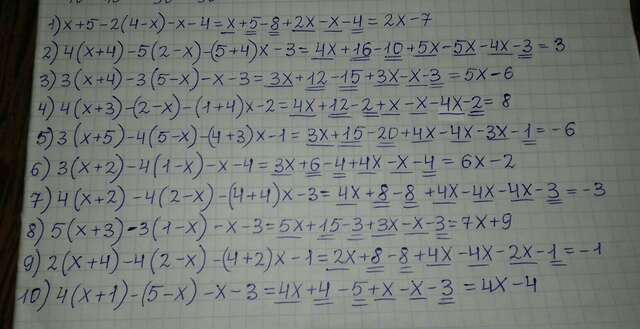 1) x+5-2(4-x)-x-4=x+5-8+2x-x-4=2x-7
2) 4(x+4)-5(2-x)-(5+4)x-3=4x+16-10+5x-5x-4x-3=3
3) 3(x+4)-3(5-x)-x-3=3x+12-15+3x-x-3=5x-6
4) 4(x+3)-(2-x)-(1+4)x-2=4x+12-2+x-x-4x-2=8
5) 3(x+5)-4(5-x)-(4+3)x-1=3x+15-20+4x-4x-3x-1=-6
6) 3(x+2)-4(1-x)-x-4=3x+6-4+4x-x-4=6x-2
7) 4(x+2)-4(2-x)-(4+4)x-3=4x+8-8+4x-4x-4x-3=-3
8) 5(x+3)-3(1-x)-x-3=5x+15-3+3x-x-3=7x+9
9) 2(x+4)-4(2-x)-(4+2)x-1=2x+8-8+4x-4x-2x-1=-1
10) 4(x+1)-(5-x)-x-3=4x+4-5+x-x-3=4x-4